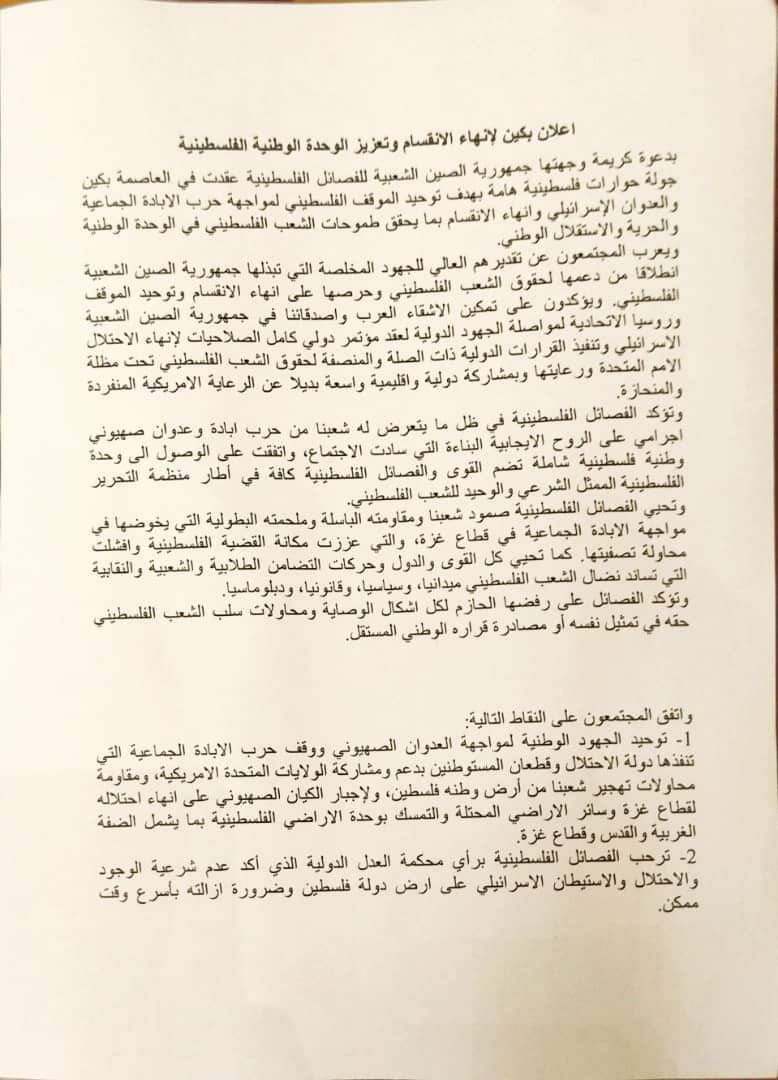 اعلان بكين لإنهاء الانقسام وتعزيز الوحدة الوطنية الفلسطينية
بدعوة كريمة وجهتها جمهورية الصين الشعبية للفصائل الفلسطينية عقدت في العاصمة بكين
جولة حوارات فلسطينية هامة بهدف توحيد الموقف الفلسطيني لمواجهة حرب الابادة الجماعية
والعدوان الإسرائيلي وانهاء الانقسام بما يحقق طموحات الشعب الفلسطيني في الوحدة الوطنية
والحرية والاستقلال الوطني.
ويعرب المجتمعون عن تقديرهم العالي للجهود المخلصة التي تبذلها جمهورية الصين الشعبية
انطلاقا من دعمها لحقوق الشعب الفلسطيني وحرصها على انهاء الانقسام وتوحيد الموقف
الفلسطيني. ويؤكدون على تمكين الاشقاء العرب واصدقائنا في جمهورية الصين الشعبية
وروسيا الاتحادية لمواصلة الجهود الدولية لعقد مؤتمر دولي كامل الصلاحيات لإنهاء الاحتلال
الاسرائيلي وتنفيذ القرارات الدولية ذات الصلة والمنصفة لحقوق الشعب الفلسطيني تحت مظلة
الامم المتحدة ورعايتها وبمشاركة دولية واقليمية واسعة بديلا عن الرعاية الامريكية المنفردة
والمنحازة.
وتؤكد الفصائل الفلسطينية في ظل ما يتعرض له شعبنا من حرب ابادة وعدوان صهيوني
اجرامي على الروح الايجابية البناءة التي سادت الاجتماع، واتفقت على الوصول الى وحدة
وطنية فلسطينية شاملة تضم القوى والفصائل الفلسطينية كافة في أطار منظمة التحرير
الفلسطينية الممثل الشرعي والوحيد للشعب الفلسطيني.
وتحيي الفصائل الفلسطينية صمود شعبنا ومقاومته الباسلة وملحمته البطولية التي يخوضها في
مواجهة الابادة الجماعية في قطاع غزة، والتي عززت مكانة القضية الفلسطينية وافشلت
محاولة تصفيتها. كما تحيي كل القوى والدول وحركات التضامن الطلابية والشعبية والنقابية
التي تساند نضال الشعب الفلسطيني ميدانيا، وسياسيا، وقانونيا، ودبلوماسيا.
وتؤكد الفصائل على رفضها الحازم لكل اشكال الوصاية ومحاولات سلب الشعب الفلسطيني
حقه في تمثيل نفسه أو مصادرة قراره الوطني المستقل.
واتفق المجتمعون على النقاط التالية:
1- توحيد الجهود الوطنية لمواجهة العدوان الصهيوني ووقف حرب الابادة الجماعية التي
تنفذها دولة الاحتلال وقطعان المستوطنين بدعم ومشاركة الولايات المتحدة الامريكية، ومقاومة
محاولات تهجير شعبنا من أرض وطنه فلسطين، ولإجبار الكيان الصهيوني على انهاء احتلاله
لقطاع غزة وسائر الاراضي المحتلة والتمسك بوحدة الاراضي الفلسطينية بما يشمل الضفة
الغربية والقدس وقطاع غزة.
2- ترحب الفصائل الفلسطينية برأي محكمة العدل الدولية الذي أكد عدم شرعية الوجود
والاحتلال والاستيطان الاسرائيلي على ارض دولة فلسطين وضرورة ازالته بأسرع وقت
ممكن.